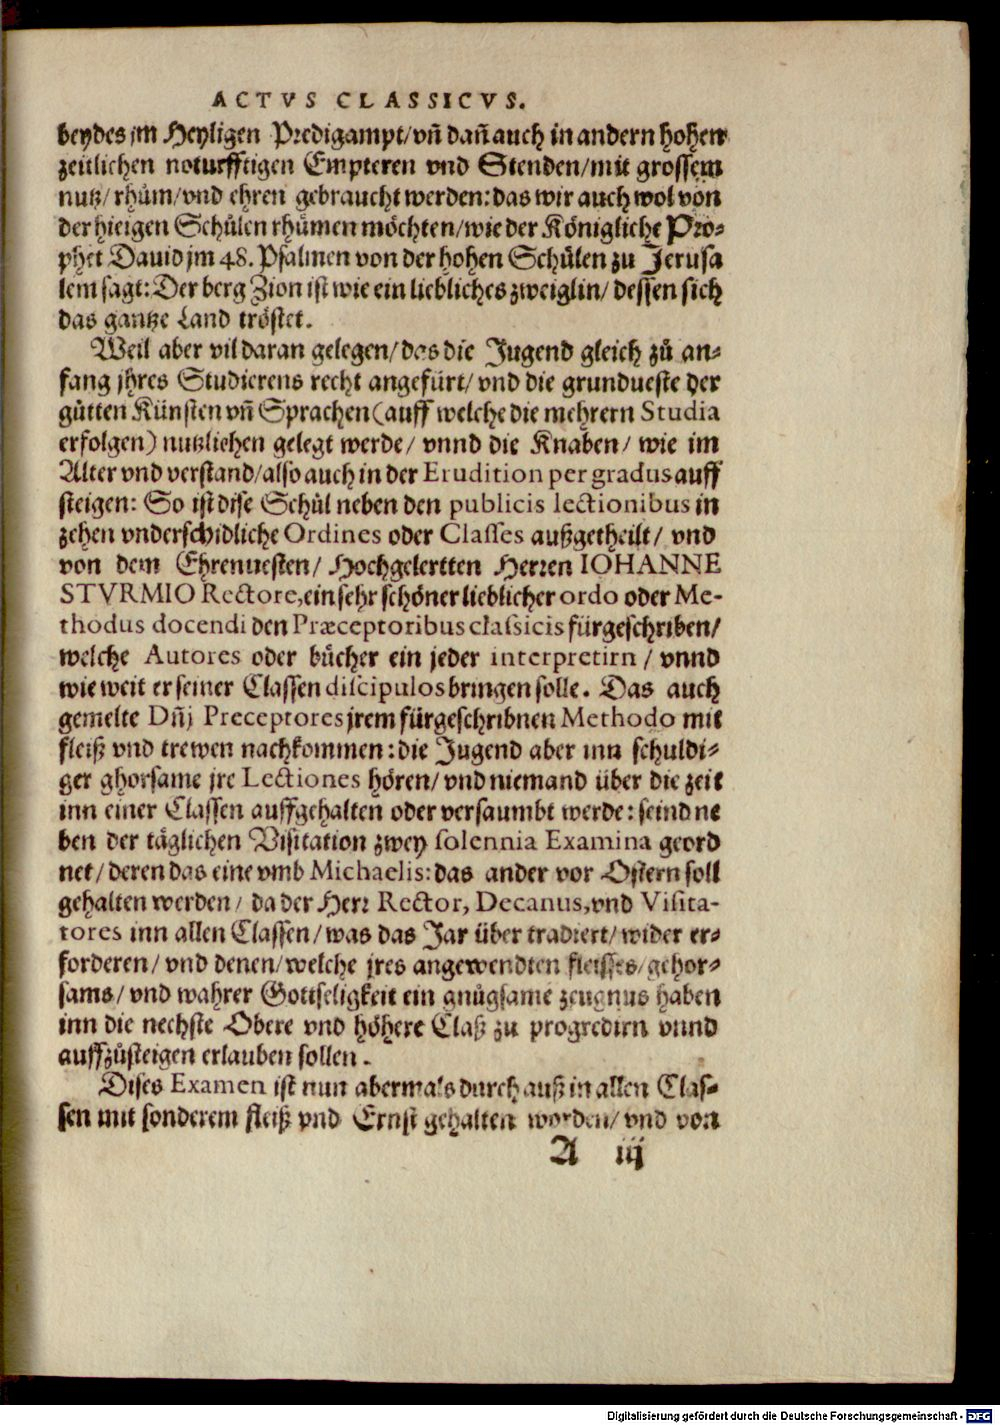 ACTVS CLASSICVS.
beydes jm Heyligen Predigampt/ vñ dañ auch in andern hohen
zeitlichen noturfftigen Empteren vnd Stenden/ mit grossem
nutz/ rhům/ vnd ehren gebraucht werden: das wir auch wol von
der hieigen Schůlen rhůmen möchten/ wie der Königliche Pro-
phet Dauid jm 48. Psalmen von der hohen Schůlen zu Jerusa
lem sagt: Der berg Zion ist wie ein liebliches zweiglin/ dessen sich
das gantze Land tröstet.
Weil aber vil daran gelegen/ das die Jugend gleich zů an-
fang jhres Studierens recht angefürt/ vnd die grundueste der
gůtten Künsten vñ Sprachen (auff welche die mehrern Studia
erfolgen) nutzlichen gelegt werde/ vnnd die Knaben/ wie im
Alter vnd verstand/ also auch in der Erudition per gradus auff
steigen: So ist dise Schůl neben den publicis lectionibus in
zehen vnderschidliche Ordines oder Classes außgetheilt/ vnd
von dem Ehrenuesten/ Hochgelertten Herren IOHANNE
STVRMIO Rectore, ein sehr schöner lieblicher ordo oder Me-
thodus docendi den Præceptoribus classicis fürgeschriben/
welche Autores oder bůcher ein jeder interpretirn / vnnd
wie weit er seiner Classen discipulos bringen solle. Das auch
gemelte Dñj Preceptores jrem fürgeschribnen Methodo mit
fleiß vnd trewen nachkommen: die Jugend aber inn schuldi-
ger ghorsame jre Lectiones hören/ vnd niemand über die zeit
inn einer Classen auffgehalten oder versaumbt werde: seind ne
ben der täglichen Visitation zwey solennia Examina geord
net/ deren das eine vmb Michaelis: das ander vor Ostern soll
gehalten werden/ da der Herr Rector, Decanus, vnd Visita-
tores inn allen Classen/ was das Jar über tradiert/ wider er-
forderen/ vnd denen/ welche jres angewendten fleisses/ gehor-
sams/ vnd wahrer Gottseligkeit ein gnůgsame zeugnus haben
inn die nechste Obere vnd höhere Claß zu progredirn vnnd
auffzůsteigen erlauben sollen.
Dises Examen ist nun abermals durch auß in allen Clas-
sen mit sonderem fleiß vnd Ernst gehalten worden/ vnd von
A iij
Digitalisierung gefördert durch die Deutsche Forschungsgemeinschaft - DFG